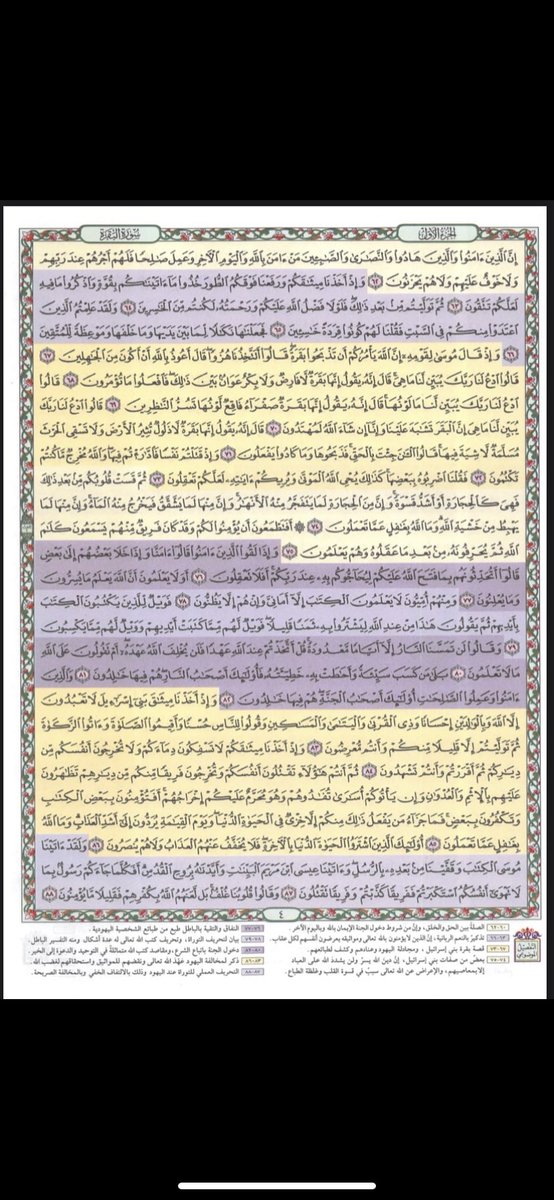 الجزء الأول
سورة البقرة
إِنَّ الَّذِينَ ءَامَنُوا وَالَّذِينَ هَادُوا وَالنَّصَٰرَىٰ وَالصَّٰبِـِٔينَ مَنْ ءَامَنَ بِاللَّهِ وَالْيَوْمِ الْءَاخِرِ وَعَمِلَ صَٰلِحًا فَلَهُمْ أَجْرُهُمْ عِندَ رَبِّهِمْ
وَلَا خَوْفٌ عَلَيْهِمْ وَلَا هُمْ يَحْزَنُونَ ٦٢ وَإِذْ أَخَذْنَا مِيثَٰقَكُمْ وَرَفَعْنَا فَوْقَكُمُ الطُّورَ خُذُوا مَا ءَاتَيْنَٰكُم بِقُوَّةٍ وَاذْكُرُوا مَا فِيهِ
لَعَلَّكُمْ تَتَّقُونَ ٦٣ ثُمَّ تَوَلَّيْتُم مِّنۢ بَعْدِ ذَٰلِكَ فَلَوْلَا فَضْلُ اللَّهِ عَلَيْكُمْ وَرَحْمَتُهُۥ لَكُنتُم مِّنَ الْخَٰسِرِينَ ٦٤ وَلَقَدْ عَلِمْتُمُ الَّذِينَ
اعْتَدَوْا مِنكُمْ فِي السَّبْتِ فَقُلْنَا لَهُمْ كُونُوا قِرَدَةً خَٰسِـِٔينَ ٦٥ فَجَعَلْنَٰهَا نَكَٰلًا لِّمَا بَيْنَ يَدَيْهَا وَمَا خَلْفَهَا وَمَوْعِظَةً لِّلْمُتَّقِينَ
٦٦ وَإِذْ قَالَ مُوسَىٰ لِقَوْمِهِۦٓ إِنَّ اللَّهَ يَأْمُرُكُمْ أَن تَذْبَحُوا بَقَرَةً قَالُوا أَتَتَّخِذُنَا هُزُوًا قَالَ أَعُوذُ بِاللَّهِ أَنْ أَكُونَ مِنَ الْجَٰهِلِينَ ٦٧
قَالُوا ادْعُ لَنَا رَبَّكَ يُبَيِّن لَّنَا مَا هِيَ قَالَ إِنَّهُۥ يَقُولُ إِنَّهَا بَقَرَةٌ لَّا فَارِضٌ وَلَا بِكْرٌ عَوَانٌۢ بَيْنَ ذَٰلِكَ فَافْعَلُوا مَا تُؤْمَرُونَ ٦٨ قَالُوا
ادْعُ لَنَا رَبَّكَ يُبَيِّن لَّنَا مَا لَوْنُهَا قَالَ إِنَّهُۥ يَقُولُ إِنَّهَا بَقَرَةٌ صَفْرَآءُ فَاقِعٌ لَّوْنُهَا تَسُرُّ النَّٰظِرِينَ ٦٩ قَالُوا ادْعُ لَنَا رَبَّكَ
يُبَيِّن لَّنَا مَا هِيَ إِنَّ الْبَقَرَ تَشَٰبَهَ عَلَيْنَا وَإِنَّآ إِن شَآءَ اللَّهُ لَمُهْتَدُونَ ٧٠ قَالَ إِنَّهُۥ يَقُولُ إِنَّهَا بَقَرَةٌ لَّا ذَلُولٌ تُثِيرُ الْأَرْضَ وَلَا تَسْقِي الْحَرْثَ
مُسَلَّمَةٌ لَّا شِيَةَ فِيهَا قَالُوا الْـَٰٔنَ جِئْتَ بِالْحَقِّ فَذَبَحُوهَا وَمَا كَادُوا يَفْعَلُونَ ٧١ وَإِذْ قَتَلْتُمْ نَفْسًا فَادَّٰرَْٰتُمْ فِيهَا وَاللَّهُ مُخْرِجٌ مَّا كُنتُمْ
تَكْتُمُونَ ٧٢ فَقُلْنَا اضْرِبُوهُ بِبَعْضِهَا كَذَٰلِكَ يُحْيِ اللَّهُ الْمَوْتَىٰ وَيُرِيكُمْ ءَايَٰتِهِۦ لَعَلَّكُمْ تَعْقِلُونَ ٧٣ ثُمَّ قَسَتْ قُلُوبُكُم مِّنۢ بَعْدِ ذَٰلِكَ
فَهِيَ كَالْحِجَارَةِ أَوْ أَشَدُّ قَسْوَةً وَإِنَّ مِنَ الْحِجَارَةِ لَمَا يَتَفَجَّرُ مِنْهُ الْأَنْهَٰرُ وَإِنَّ مِنْهَا لَمَا يَشَّقَّقُ فَيَخْرُجُ مِنْهُ الْمَآءُ وَإِنَّ مِنْهَا لَمَا
يَهْبِطُ مِنْ خَشْيَةِ اللَّهِ وَمَا اللَّهُ بِغَٰفِلٍ عَمَّا تَعْمَلُونَ ٧٤ ۞ أَفَتَطْمَعُونَ أَن يُؤْمِنُوا لَكُمْ وَقَدْ كَانَ فَرِيقٌ مِّنْهُمْ يَسْمَعُونَ كَلَٰمَ
اللَّهِ ثُمَّ يُحَرِّفُونَهُۥ مِنۢ بَعْدِ مَا عَقَلُوهُ وَهُمْ يَعْلَمُونَ ٧٥ وَإِذَا لَقُوا الَّذِينَ ءَامَنُوا قَالُوٓا ءَامَنَّا وَإِذَا خَلَا بَعْضُهُمْ إِلَىٰ بَعْضٍ
قَالُوٓا أَتُحَدِّثُونَهُم بِمَا فَتَحَ اللَّهُ عَلَيْكُمْ لِيُحَآجُّوكُم بِهِۦ عِندَ رَبِّكُمْ أَفَلَا تَعْقِلُونَ ٧٦ أَوَلَا يَعْلَمُونَ أَنَّ اللَّهَ يَعْلَمُ مَا يُسِرُّونَ
وَمَا يُعْلِنُونَ ٧٧ وَمِنْهُمْ أُمِّيُّونَ لَا يَعْلَمُونَ الْكِتَٰبَ إِلَّآ أَمَانِيَّ وَإِنْ هُمْ إِلَّا يَظُنُّونَ ٧٨ فَوَيْلٌ لِّلَّذِينَ يَكْتُبُونَ الْكِتَٰبَ
بِأَيْدِيهِمْ ثُمَّ يَقُولُونَ هَٰذَا مِنْ عِندِ اللَّهِ لِيَشْتَرُوا بِهِۦ ثَمَنًا قَلِيلًا فَوَيْلٌ لَّهُم مِّمَّا كَتَبَتْ أَيْدِيهِمْ وَوَيْلٌ لَّهُم مِّمَّا يَكْسِبُونَ
٧٩ وَقَالُوا لَن تَمَسَّنَا النَّارُ إِلَّآ أَيَّامًا مَّعْدُودَةً قُلْ أَتَّخَذْتُمْ عِندَ اللَّهِ عَهْدًا فَلَن يُخْلِفَ اللَّهُ عَهْدَهُۥٓ أَمْ تَقُولُونَ عَلَى اللَّهِ
مَا لَا تَعْلَمُونَ ٨٠ بَلَىٰ مَن كَسَبَ سَيِّئَةً وَأَحَٰطَتْ بِهِۦ خَطِيٓـَٔتُهُۥ فَأُولَٰٓئِكَ أَصْحَٰبُ النَّارِ هُمْ فِيهَا خَٰلِدُونَ ٨١ وَالَّذِينَ
ءَامَنُوا وَعَمِلُوا الصَّٰلِحَٰتِ أُولَٰٓئِكَ أَصْحَٰبُ الْجَنَّةِ هُمْ فِيهَا خَٰلِدُونَ ٨٢ وَإِذْ أَخَذْنَا مِيثَٰقَ بَنِيٓ إِسْرَٰٓءِيلَ لَا تَعْبُدُونَ
إِلَّا اللَّهَ وَبِالْوَٰلِدَيْنِ إِحْسَانًا وَذِي الْقُرْبَىٰ وَالْيَتَٰمَىٰ وَالْمَسَٰكِينِ وَقُولُوا لِلنَّاسِ حُسْنًا وَأَقِيمُوا الصَّلَوٰةَ وَءَاتُوا الزَّكَوٰةَ
ثُمَّ تَوَلَّيْتُمْ إِلَّا قَلِيلًا مِّنكُمْ وَأَنتُم مُّعْرِضُونَ ٨٣ وَإِذْ أَخَذْنَا مِيثَٰقَكُمْ لَا تَسْفِكُونَ دِمَآءَكُمْ وَلَا تُخْرِجُونَ أَنفُسَكُم مِّن
دِيَٰرِكُمْ ثُمَّ أَقْرَرْتُمْ وَأَنتُمْ تَشْهَدُونَ ٨٤ ثُمَّ أَنتُمْ هَٰٓؤُلَآءِ تَقْتُلُونَ أَنفُسَكُمْ وَتُخْرِجُونَ فَرِيقًا مِّنكُم مِّن دِيَٰرِهِمْ تَظَٰهَرُونَ
عَلَيْهِم بِالْإِثْمِ وَالْعُدْوَٰنِ وَإِن يَأْتُوكُمْ أُسَٰرَىٰ تُفَٰدُوهُمْ وَهُوَ مُحَرَّمٌ عَلَيْكُمْ إِخْرَاجُهُمْ أَفَتُؤْمِنُونَ بِبَعْضِ الْكِتَٰبِ
وَتَكْفُرُونَ بِبَعْضٍ فَمَا جَزَآءُ مَن يَفْعَلُ ذَٰلِكَ مِنكُمْ إِلَّا خِزْيٌ فِي الْحَيَوٰةِ الدُّنْيَا وَيَوْمَ الْقِيَٰمَةِ يُرَدُّونَ إِلَىٰٓ أَشَدِّ الْعَذَابِ وَمَا اللَّهُ
بِغَٰفِلٍ عَمَّا تَعْمَلُونَ ٨٥ أُولَٰٓئِكَ الَّذِينَ اشْتَرَوُا الْحَيَوٰةَ الدُّنْيَا بِالْءَاخِرَةِ فَلَا يُخَفَّفُ عَنْهُمُ الْعَذَابُ وَلَا هُمْ يُنصَرُونَ ٨٦ وَلَقَدْ ءَاتَيْنَا
مُوسَى الْكِتَٰبَ وَقَفَّيْنَا مِنۢ بَعْدِهِۦ بِالرُّسُلِ وَءَاتَيْنَا عِيسَى ابْنَ مَرْيَمَ الْبَيِّنَٰتِ وَأَيَّدْنَٰهُ بِرُوحِ الْقُدُسِ أَفَكُلَّمَا جَآءَكُمْ رَسُولٌۢ بِمَا
لَا تَهْوَىٰٓ أَنفُسُكُمُ اسْتَكْبَرْتُمْ فَفَرِيقًا كَذَّبْتُمْ وَفَرِيقًا تَقْتُلُونَ ٨٧ وَقَالُوا قُلُوبُنَا غُلْفٌۢ بَل لَّعَنَهُمُ اللَّهُ بِكُفْرِهِمْ فَقَلِيلًا مَّا يُؤْمِنُونَ ٨٨
٤
التفصيل الموضوعي
٦٠-٦٢ الصلة بين الحق والخلق، وإنّ من شروط دخول الجنة الإيمان بالله وباليوم الآخر.
٦٣-٦٦ تذكيرٌ بالنعم الربانية، إنّ الذين لا يؤمنون بالله تعالى ومواثيقه يعرضون أنفسهم لكل عقاب.
٦٧-٧٣ قصة بقرة بني إسرائيل، ومجادلة اليهود وعنادهم وكشف لطبائعهم.
٧٤-٧٥ بعضٌ من صفات بني إسرائيل، إنّ دين الله يسرٌ ولن يشدد الله على العباد
إلا بمعاصيهم، والإعراض عن الله تعالى سببٌ في قسوة القلب وغلظة الطباع.
٧٦-٧٧ النفاق والتقية بالباطل طبع من طبائع الشخصية اليهودية.
٧٨-٧٩ بيان لتحريف التوراة، وتحريف كتب الله تعالى له عدة أشكال، ومنه التفسير الباطل.
٨٠-٨٢ دخول الجنة باتباع الشرع، ومقاصد كتب الله متماثلةٌ في التوحيد والدعوة إلى الخير.
٨٣-٨٦ ذكر لمخالفة اليهود عهْد الله تعالى ونقضهم للمواثيق واستحقاقهم لغضب الله.
٨٧-٨٨ التحريف العملي للتوراة عند اليهود وذلك بالالتفاف الخفي وبالمخالفة الصريحة.